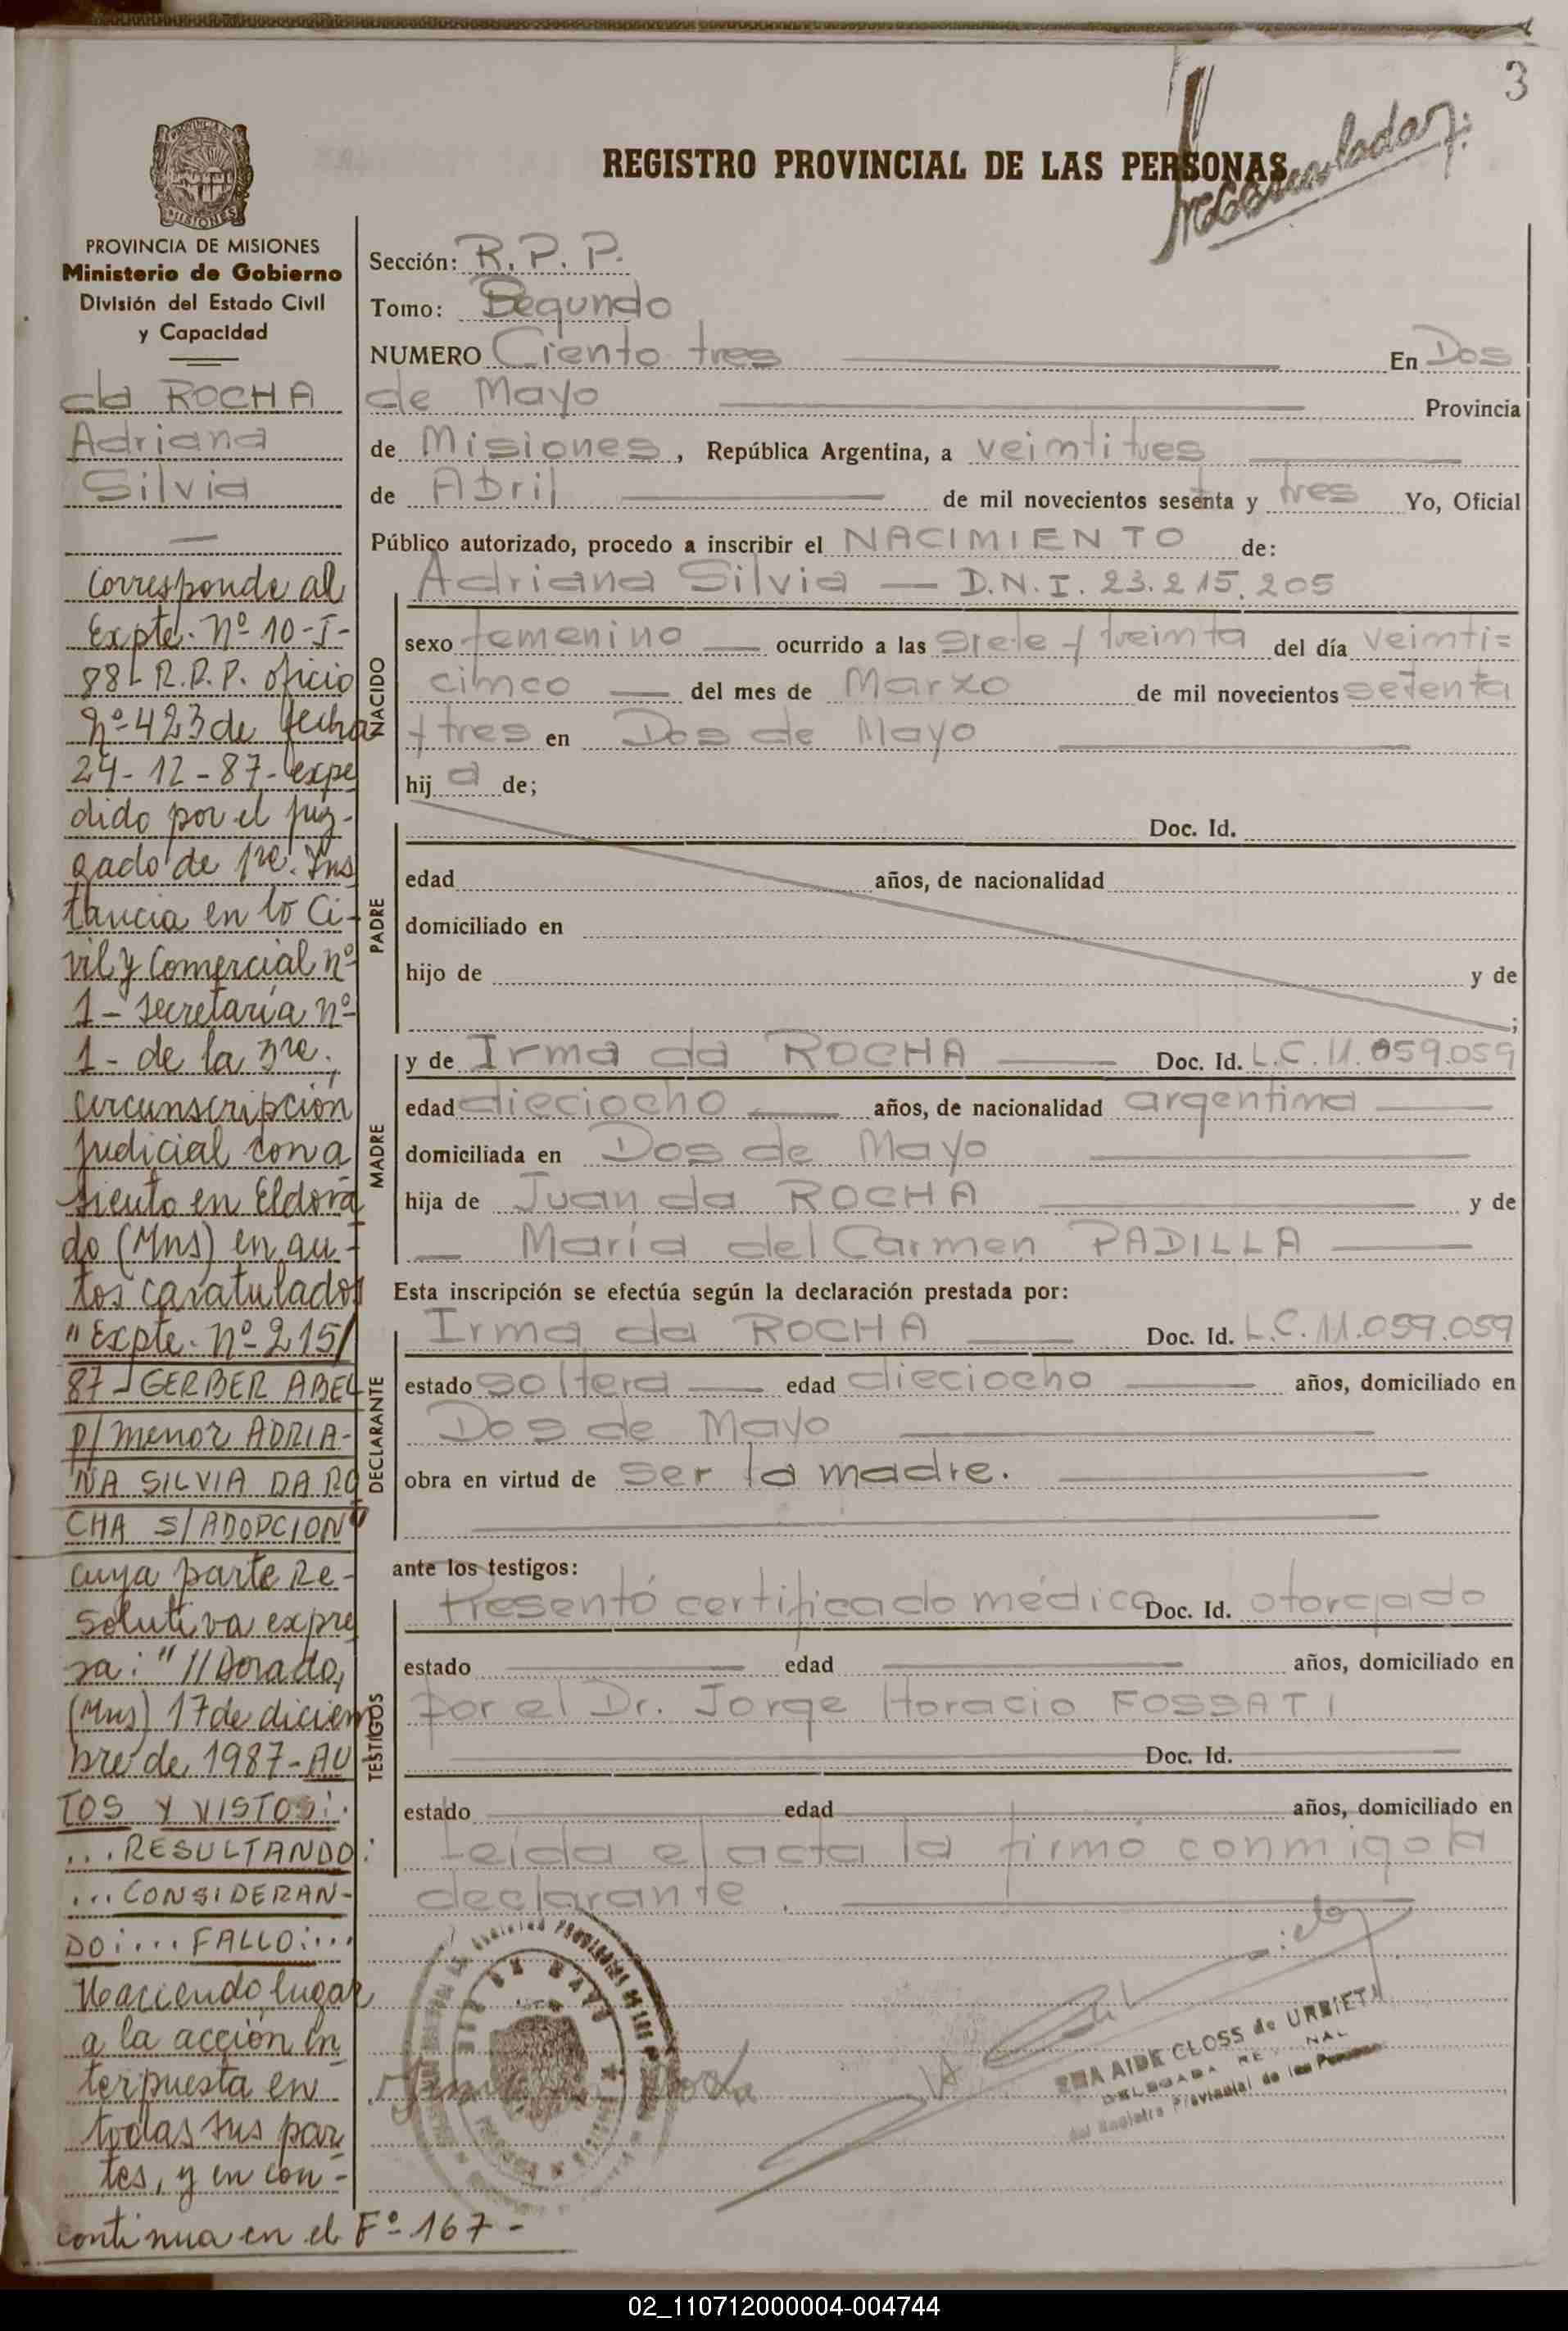 3
REGISTRO PROVINCIAL DE LAS PERSONAS
PROVINCIA DE MISIONES
Ministerio de Gobierno
División del Estado Civil
y Capacidad
da ROCHA
Adriana
Silvia
Corresponde al
Expte. Nº 10-I-
88- R.P.P. oficio
Nº 423 de fecha
24-12-87- expe
dido por el juz-
gado de 1ra. Ins
tancia en lo Ci-
vil y Comercial nº
1- Secretaría nº
1- de la 3ra.
Circunscripción
judicial con a
siento en Eldora
do (Mns) en au-
tos caratulados
"Expte. Nº 215/
87- GERBER ABEL
p/ menor ADRIA-
NA SILVIA DA RO
CHA S/ADOPCION"
cuya parte Re-
solutiva expre
sa: "//Dorado,
(Mns) 17 de diciem
bre de 1987- AU
TOS Y VISTOS:.
...RESULTANDO:
...CONSIDERAN-
DO:... FALLO:...
Haciendo lugar
a la acción in
terpuesta en
todas sus par
tes, y en con-
continua en el Fº 167-
Sección: R. P. P.
Tomo: Segundo
NUMERO Ciento tres En Dos
de Mayo Provincia
de Misiones, República Argentina, a veintitres
de Abril de mil novecientos sesenta y tres Yo, Oficial
Público autorizado, procedo a inscribir el NACIMIENTO de:
Adriana Silvia — D.N.I. 23.215.205
NACIDO
sexo femenino ocurrido a las siete y treinta del día veinti=
cinco del mes de Marzo de mil novecientos setenta
y tres en Dos de Mayo
hija de;
PADRE
Doc. Id.
edad años, de nacionalidad
domiciliado en
hijo de y de
;
MADRE
y de Irma da ROCHA Doc. Id. L.C. 11.059.059
edad dieciocho años, de nacionalidad argentina
domiciliada en Dos de Mayo
hija de Juan da ROCHA y de
María del Carmen PADILLA
Esta inscripción se efectúa según la declaración prestada por:
DECLARANTE
Irma da ROCHA Doc. Id. L.C. 11.059.059
estado soltera edad dieciocho años, domiciliado en
Dos de Mayo
obra en virtud de ser la madre.
ante los testigos:
TESTIGOS
Presentó certificado médico Doc. Id. otorgado
estado edad años, domiciliado en
por el Dr. Jorge Horacio FOSSATI
Doc. Id.
estado edad años, domiciliado en
Leída el acta la firmó conmigo la
declarante.
AIDE CLOSS de URBIETA
DELEGADA
del Registro Provincial de las Personas
02_110712000004-004744